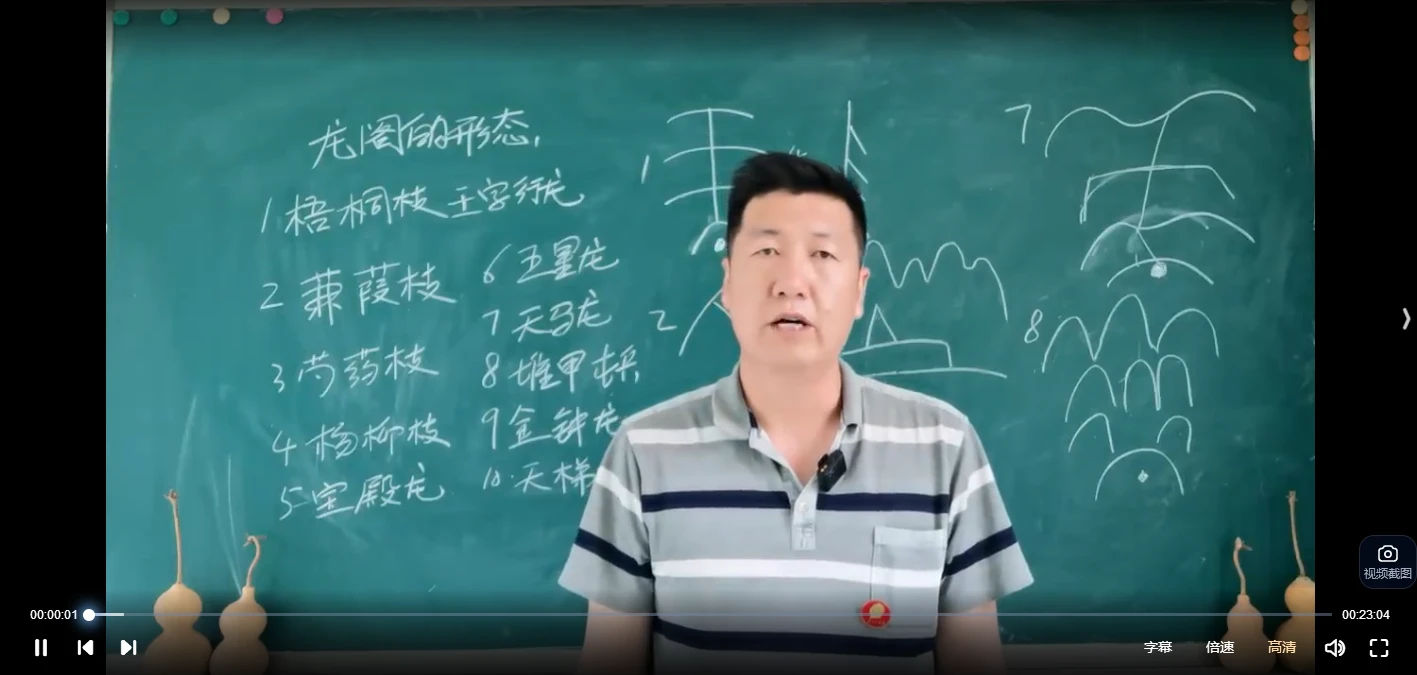 龙阁的形态,
1 梧桐枝 王字行龙
2 蒹葭枝
3 芍药枝
4 杨柳枝
5 宝殿龙
6 五星龙
7 天马龙
8 堆甲屯
9 金钟龙
10.天梯
1
2
7
8
视频截图
00:00:01
00:23:04
字幕 倍速 高清